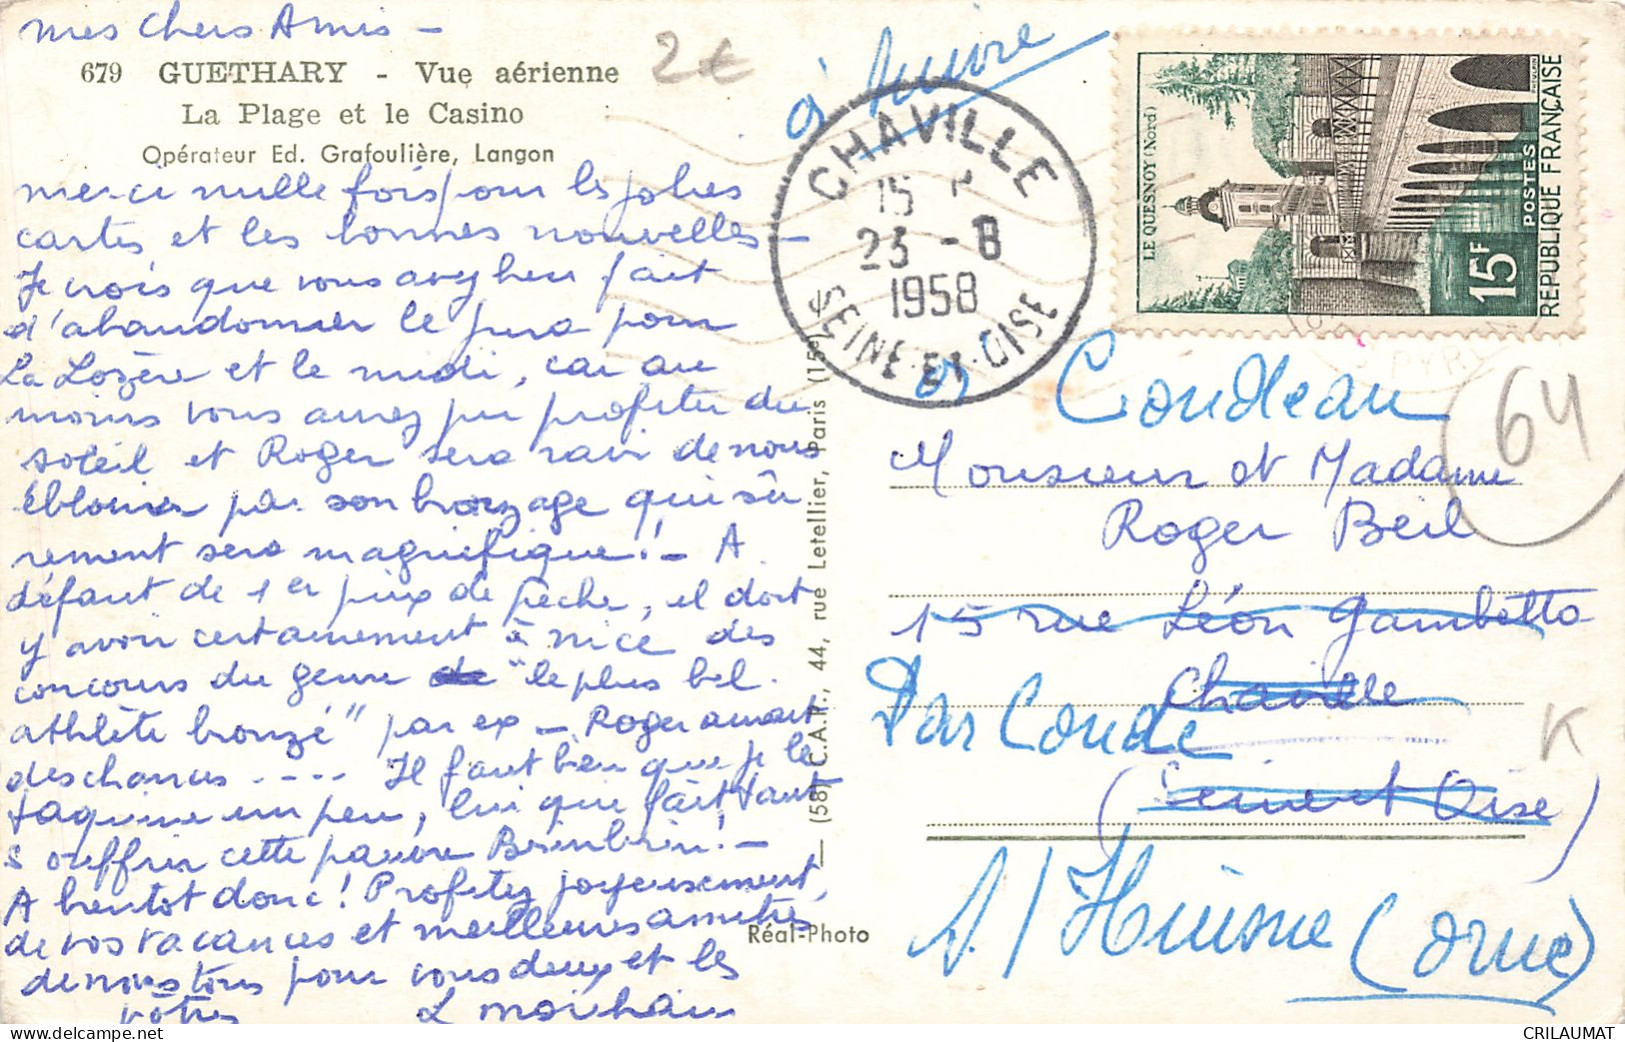 mes Chers Amis -
679 GUETHARY - Vue aérienne
La Plage et le Casino
Opérateur Ed. Grafoulière, Langon
merci mille fois pour les jolies
cartes et les bonnes nouvelles -
Je crois que vous avez bien fait
d'abandonner le Jura pour
La Lozère et le midi, car au
moins vous aurez pu profiter du
soleil et Roger sera ravi de nous
éblouir par son bronzage qui sû
rement sera magnifique! - A
défaut de 1er prix de pêche, il doit
y avoir certainement à Nice des
concours du genre "le plus bel
athlète bronzé" par ex - Roger aurait
des chances .... Il faut bien que je le
taquine un peu, lui qui fait tant
souffrir cette pauvre
A bientôt donc! Profitez joyeusement,
de vos vacances et meilleures amitiés
de nous tous pour vous deux et les
vôtres
2€
à suivre
CHAVILLE
15
23 - 8
1958
SEINE-ET-OISE
LE QUESNOY (Nord)
15F
POSTES
REPUBLIQUE FRANÇAISE
(58) C.A.P., 44, rue Letellier, Paris (15e)
Réal-Photo
à Coudleau
Monsieur et Madame
Roger Beil
15 rue Léon Gambetta
Chaville
Par Condé
(Seine et Oise)
s/ Huisne (Orne)
64
K
CRILAUMAT